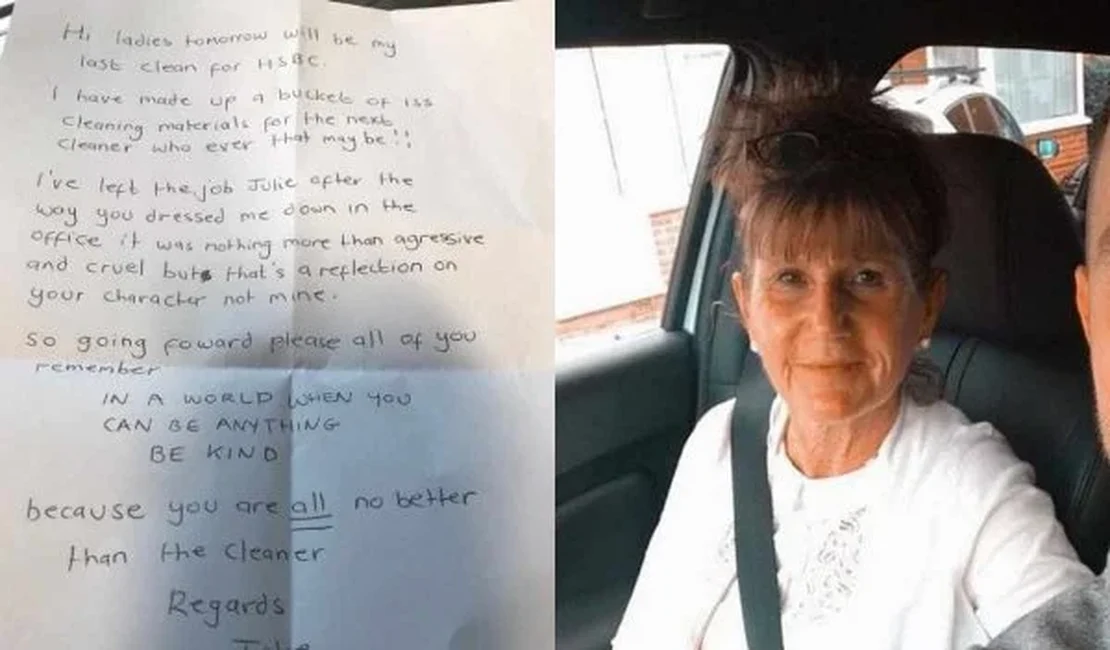 Hi ladies tomorrow will be my
last clean for HSBC.
I have made up a bucket of iss
cleaning materials for the next
cleaner who ever that may be!!
I've left the job Julie after the
way you dressed me down in the
office it was nothing more than agressive
and cruel but that's a reflection on
your character not mine.
So going foward please all of you
remember
IN A WORLD WHEN YOU
CAN BE ANYTHING
BE KIND
because you are all no better
than the cleaner
Regards